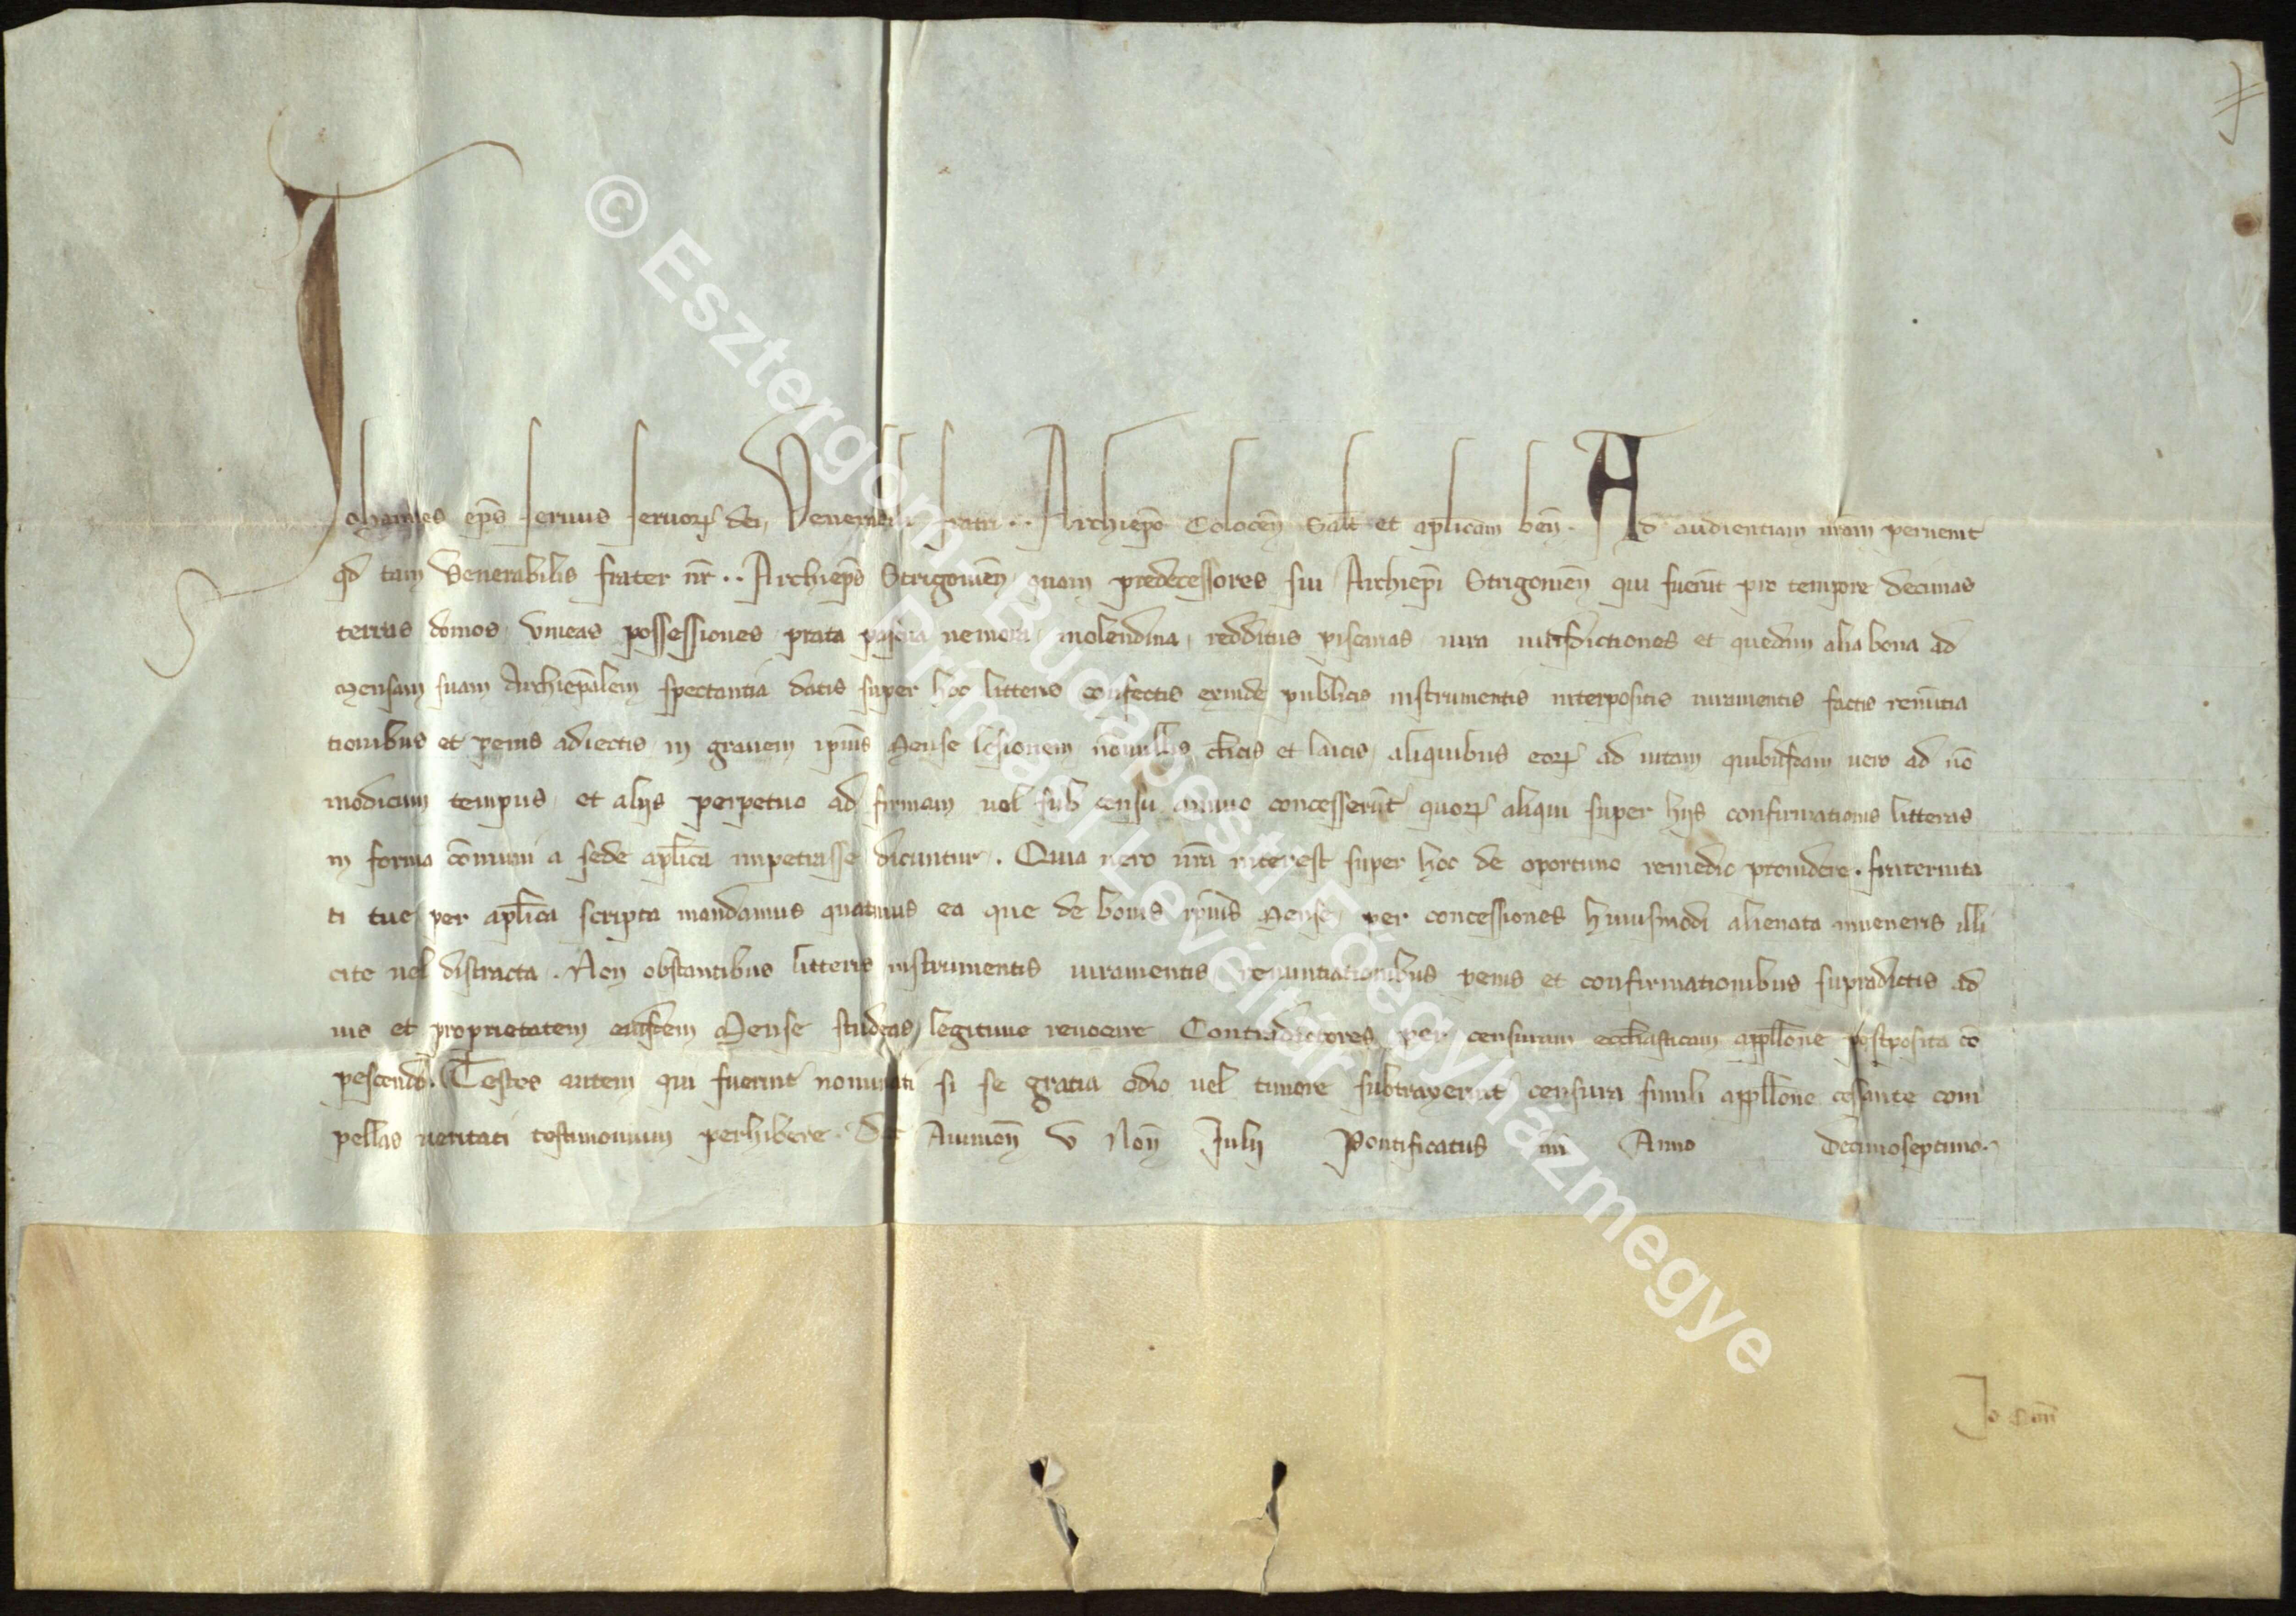 Johannes ep̄s seruus seruoꝝ dei, Venerabili fratri ·· Archiep̄o Colocen̄ Salt̄ et apl̄icam ben̄. Ad audientiam nr̄am peruenit
qd̄ tam Venerabilis frater nr̄ ·· Archiep̄s Strigonien̄ quam predecessores sui Archiep̄i Strigonien̄ qui fuerūt pro tempore decimas
terras domos, vineas possessiones prata pascua nemora, molendina, redditus piscarias iura iurisdictiones et quedam alia bona ad
Mensam suam Archiep̄alem spectantia datis super hoc litteris confectis exinde publicis instrumentis interpositis iuramentis factis renūtia
tionibus et penis adiectis, in grauem ip̄ius Mense lesionem, nōnullis cl̄icis et laicis, aliquibus eoꝝ ad uitam quibusdam uero ad nō
modicum tempus, et alijs perpetuo ad firmam uel sub censu annuo concesserūt quoꝝ aliqui super hijs confirmationis litteras
in forma cōmuni a sede apl̄ica impetrasse dicuntur. Quia uero nr̄a interest super hoc de oportuno remedio prouidere. fraternita
ti tue per apl̄ica scripta mandamus quatinus ea que de bonis ip̄ius Mense, per concessiones huiusmodi alienata inueneris illi
cite uel distracta. Non obstantibus litteris instrumentis iuramentis renuntiationibus penis et confirmationibus supradictis ad
ius et proprietatem eiusdem Mense studeas, legitime reuocare Contradictores per censuram eccl̄iasticam appell̄one postposita cō
pescendo. Testes autem qui fuerint nominati si se gratia odio uel timore subtraxerint censura simili appell̄one cessante com
pellas ueritati testimonium perhibere. Dat̄ Auinion̄ v Non̄ Julij Pontificatus nr̄i Anno decimoseptimo.
© Esztergom-Budapesti Főegyházmegye
Prímási Levéltár